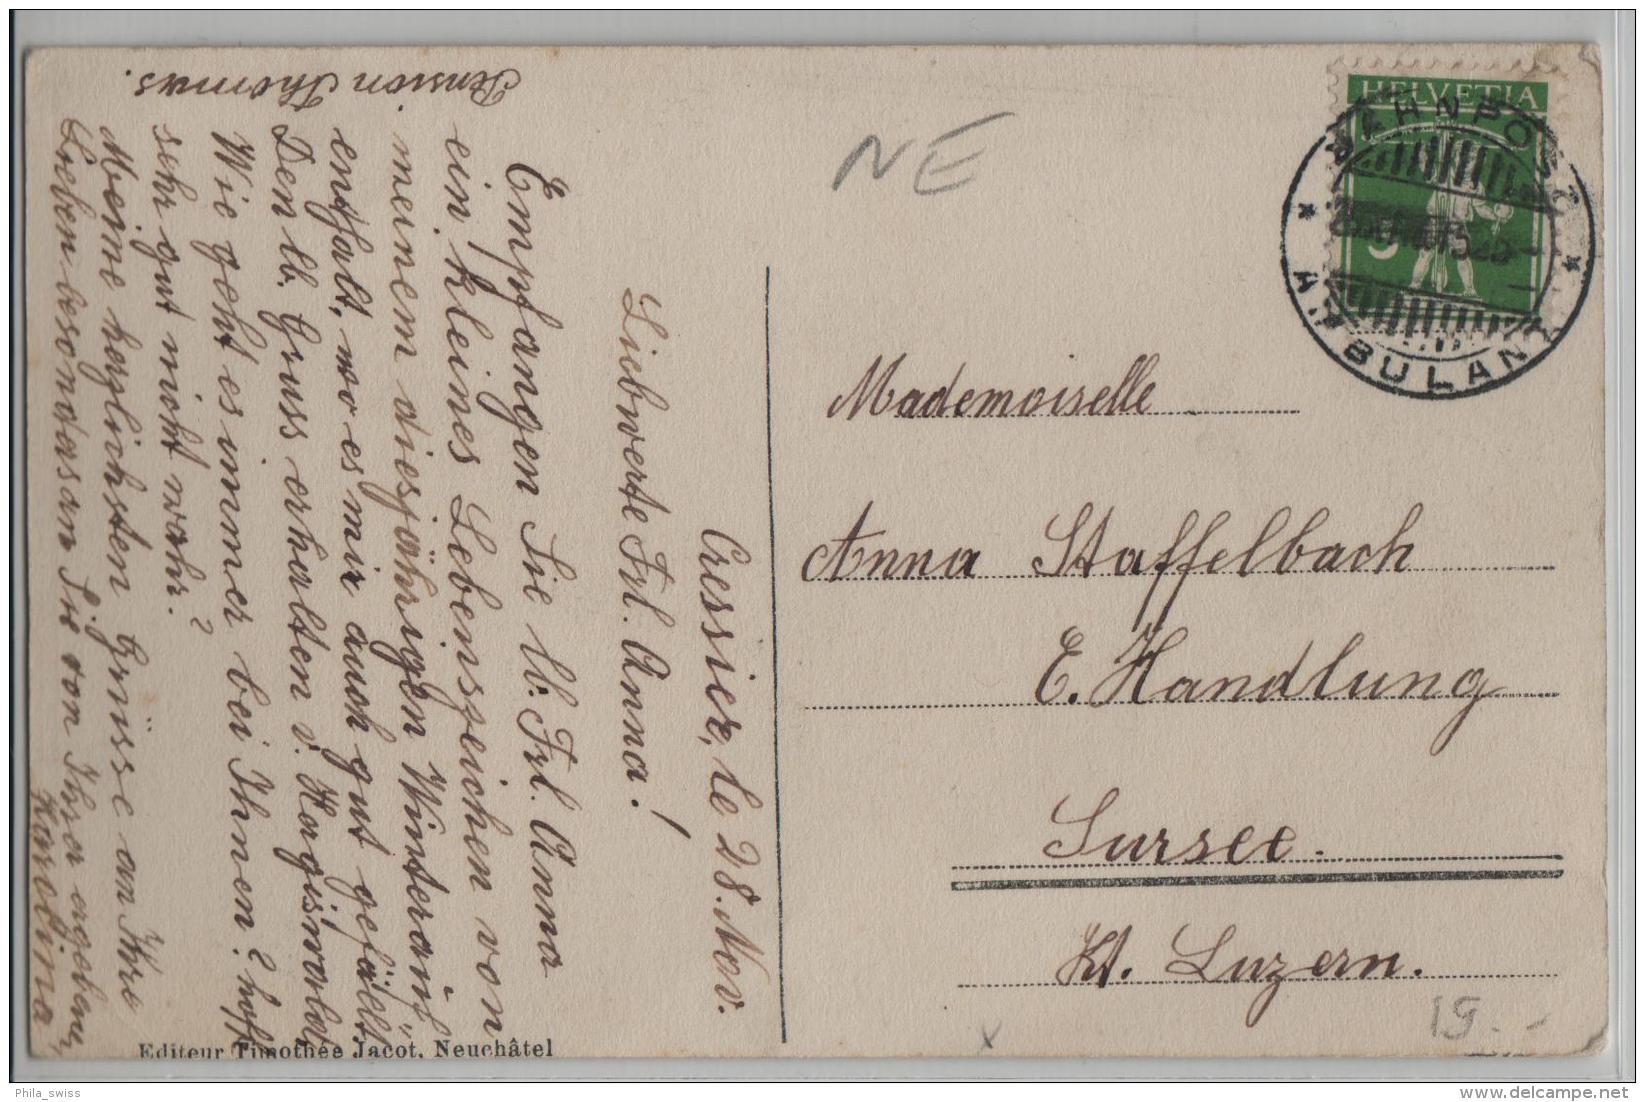 Cressier, le 28. Nov.
Liebwerte Frl. Anna!
Empfangen Sie lb. Frl. Anna
ein kleines Lebenszeichen von
meinem diesjährigen Winteraufent-
entfalt, wo es mir auch gut gefällt.
Den lb. Gruss erhalten v. Hergiswald
Wie geht es immer bei Ihnen? hoff.
sehr gut nicht wahr?
Meine herzlichsten Grüsse an Ihre
Lieben besonders an Sie von Ihrer ergebenen
Karolina
Pension Thomas.
HELVETIA
5
BAHNPOST
AMBULANT
NE
Mademoiselle
Anna Staffelbach
E. Handlung
Sursee.
Kt. Luzern.
19.-
x
Editeur Timothée Jacot, Neuchâtel
Phila_swiss